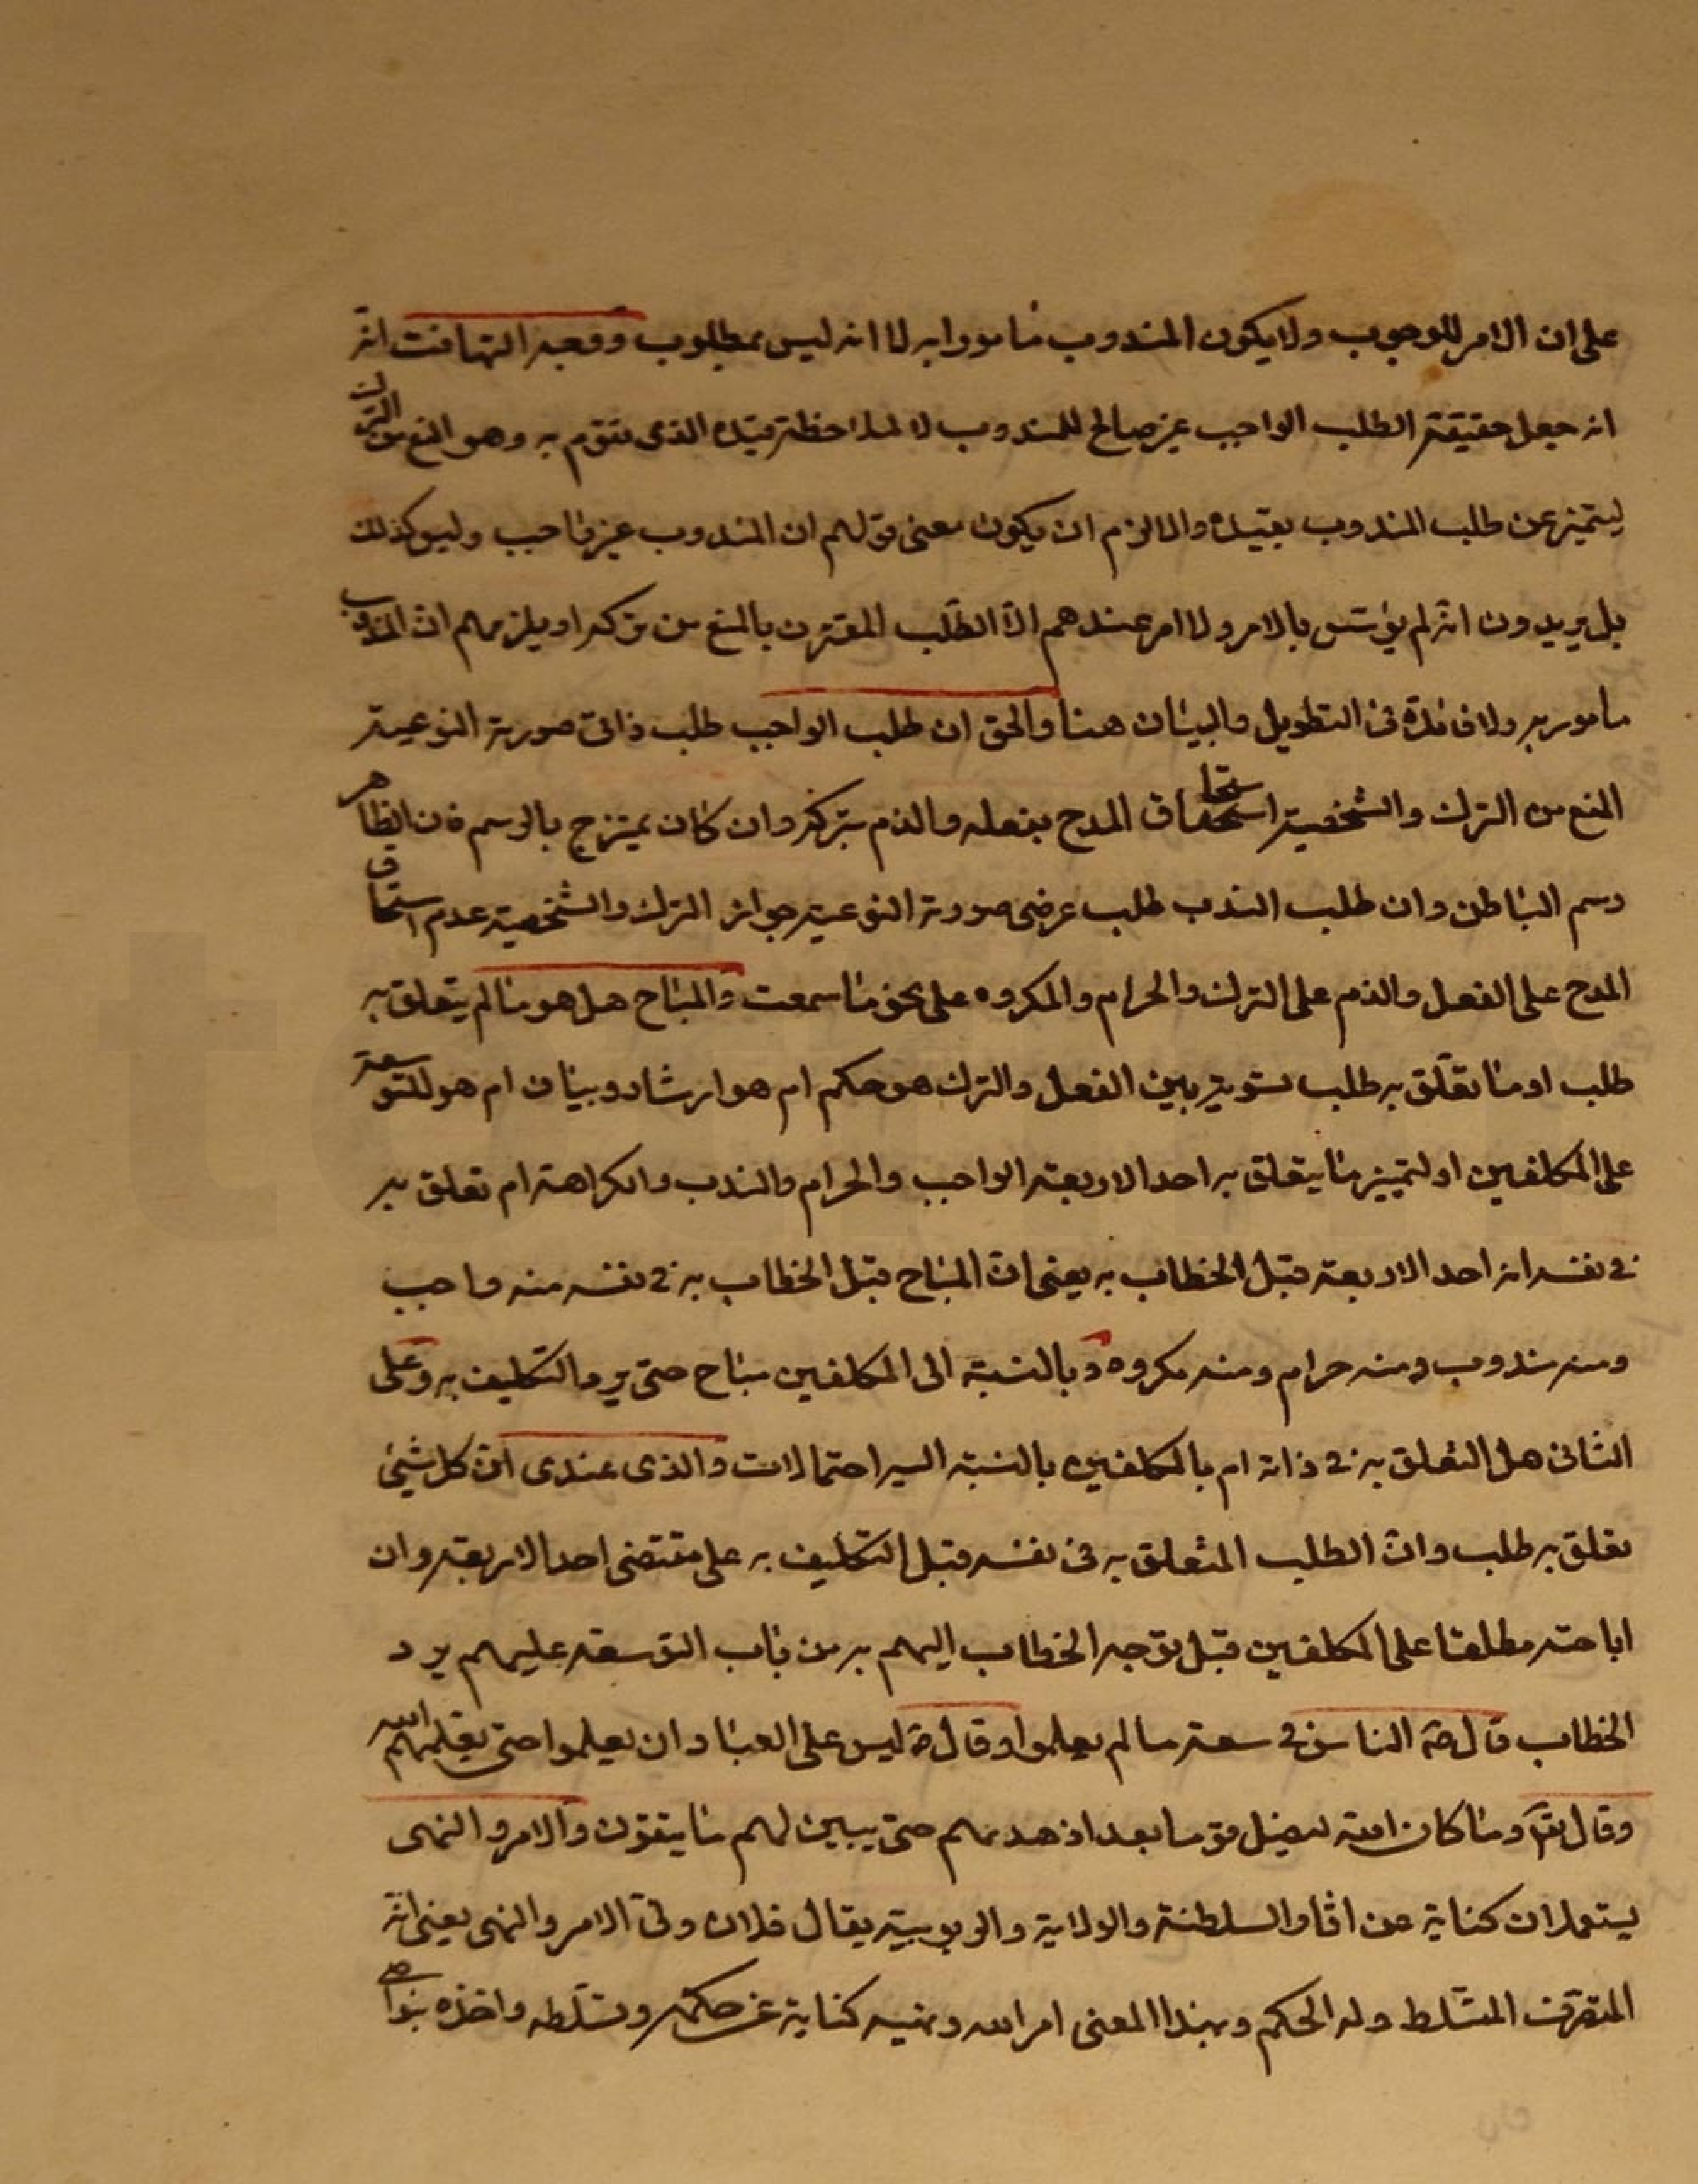 على ان الامر للوجوب ولا يكون المندوب مامورا به لا انه ليس بمطلوب ووجه التهافت انه
انه جعل حقيقة الطلب الواجب غير صالح للمندوب لا لملاحظة قيده الذى تقوم به وهو المنع من الترك
ليتميز عن طلب المندوب بقيده والا لزم ان يكون معنى قولهم ان المندوب غير واجب وليس كذلك
بل يريدون انه لم بالامر ولا امر عندهم الا الطلب المقترن بالمنع من تركه او يلزمهم ان المندوب
مامور به ولا فائدة فى التطويل والبيان هنا والحق ان طلب الواجب طلب ذاتى صورته النوعية
المنع من الترك والشخصية استحقاق المدح بفعله والذم بتركه وان كان يمتزج بالرسم فان الظاهر
رسم الباطن وان طلب الندب طلب عرضى صورته النوعية جواز الترك والشخصية عدم استحقاق
المدح على الفعل والذم على الترك والحرام والمكروه على نحو ما سمعت والمباح هل هو ما لم يتعلق به
طلب او ما تعلق به طلب تسوية بين الفعل والترك هو حكم ام هو ارشاد وبيان ام هو للتوسعة
على المكلفين او لتمييز ما يتعلق به احد الاربعة الواجب والحرام والندب والكراهة ام تعلق به
فى نفسه احد الاربعة قبل الخطاب به يعنى ان المباح قبل الخطاب به فى نفسه منه واجب
ومنه مندوب ومنه حرام ومنه مكروه وبالنسبة الى المكلفين مباح حتى يرد التكليف به وعلى
الثانى هل التعلق به فى ذاته ام بالمكلفين بالنسبة اليه احتمالات والذى عندى ان كل شئ
تعلق به طلب وان الطلب المتعلق به فى نفسه قبل التكليف به على مقتضى احد الاربعة وان
اباحته مطلقا على المكلفين قبل توجه الخطاب اليهم به من باب التوسعة عليهم يرد
الخطاب قال ص الناس فى سعة ما لم يعلموا وقال ص ليس على العباد ان يعلموا حتى يعلمهم الله
وقال تعا وما كان الله ليضل قوما بعد اذ هديهم حتى يبين لهم ما يتقون والامر والنهى
يستعملان كناية عن السلطنة والولاية والربوبية يقال فلان ولى الامر والنهى يعنى انه
المتصرف المتسلط وله الحكم وبهذا المعنى امر الله ونهيه كناية عن حكمه وتسلطه واخذه بنواصى